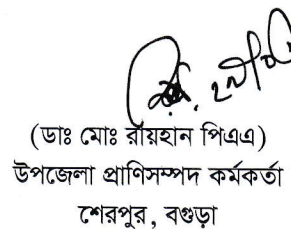 (ডাঃ মোঃ রায়হান পিএএ)
উপজেলা প্রাণিসম্পদ কর্মকর্তা
শেরপুর, বগুড়া